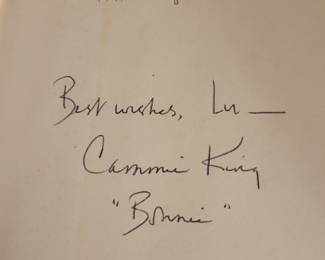 Best wishes, Lu —
Cammie King
"Bonnie"